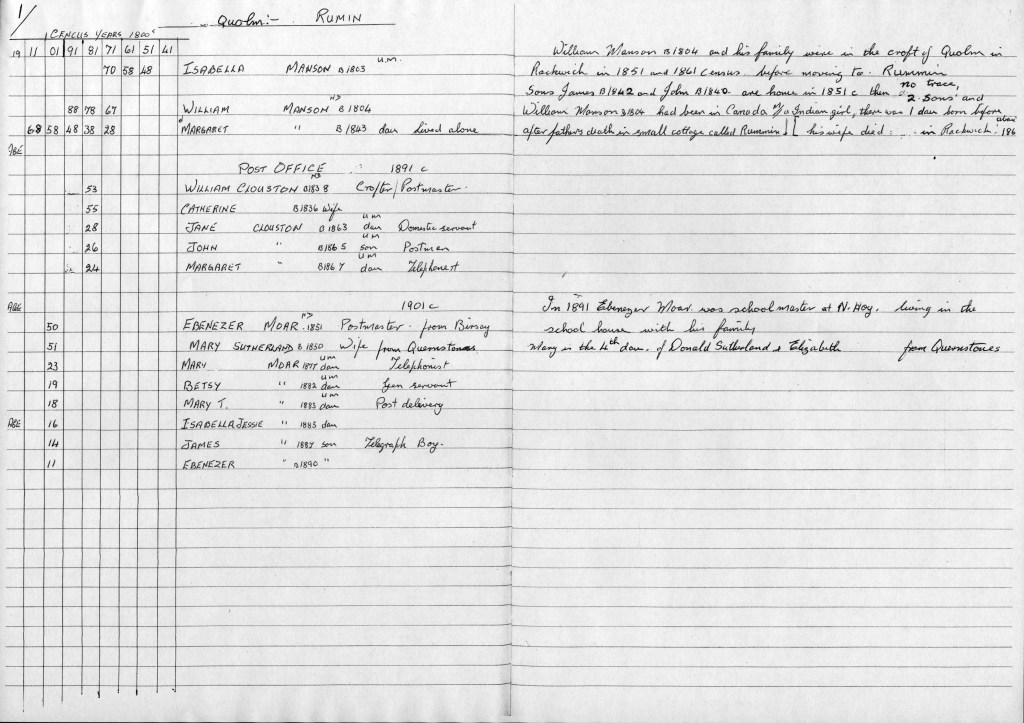 1/
Quolm:- RUMIN
CENCUS YEARS 1800s
19 11 01 91 81 71 61 51 41
70 58 48 ISABELLA MANSON B1803 u.m.
88 78 67 WILLIAM MANSON WD B1804
68 58 48 38 28 MARGARET " B1843 dau lived alone
AGE
POST OFFICE 1891 c
53 WILLIAM CLOUSTON B1838 Crofter/Postmaster.
55 CATHERINE B1836 Wife
28 JANE CLOUSTON B1863 um dau Domestic servant
26 JOHN " B1865 um son Postman
24 MARGARET " B1867 um dau Telephonest
AGE 1901 c
50 EBENEZER MOAR. 1851 HD Postmaster. from Birsay
51 MARY SUTHERLAND B 1850 Wife from Quernstones
23 MARY MOAR 1877 um dau Telephonist
19 BETSY " 1882 um dau Gen servant
18 MARY T. " 1883 um dau Post delivery
AGE 16 ISABELLA JESSIE " 1885 dau
14 JAMES " 1887 son Telegraph Boy.
11 EBENEZER " B1890 "
William Manson B1804 and his family were in the croft of Quolm in
Rackwich in 1851 and 1861 Census before moving to Rummin
Sons James B1842 and John B1840 are home in 1851 c then no trace,
William Manson B1804 had been in Canada Indian girl, there was 1 dau born before 2 Sons and
after fathers death in small cottage called Rummin his wife died in Rackwich 186
In 1891 Ebenezer Moar was schoolmaster at N. Hoy. living in the
school house with his family
Mary is the 4th dau. of Donald Sutherland & Elizabeth from Quernstones